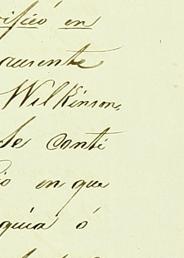 ificó en
ausente
Wilkinson,
Se conti
io en que
quia ó